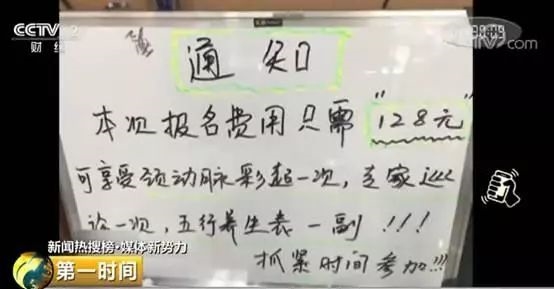 CCTV 2
财经
tv.com
通知
本次报名费用只需"128元"
可享受颈动脉彩超一次,专家巡
论一次,五行养生表一副!!!
抓紧时间参加!!!
新闻热搜榜·媒体新势力
第一时间